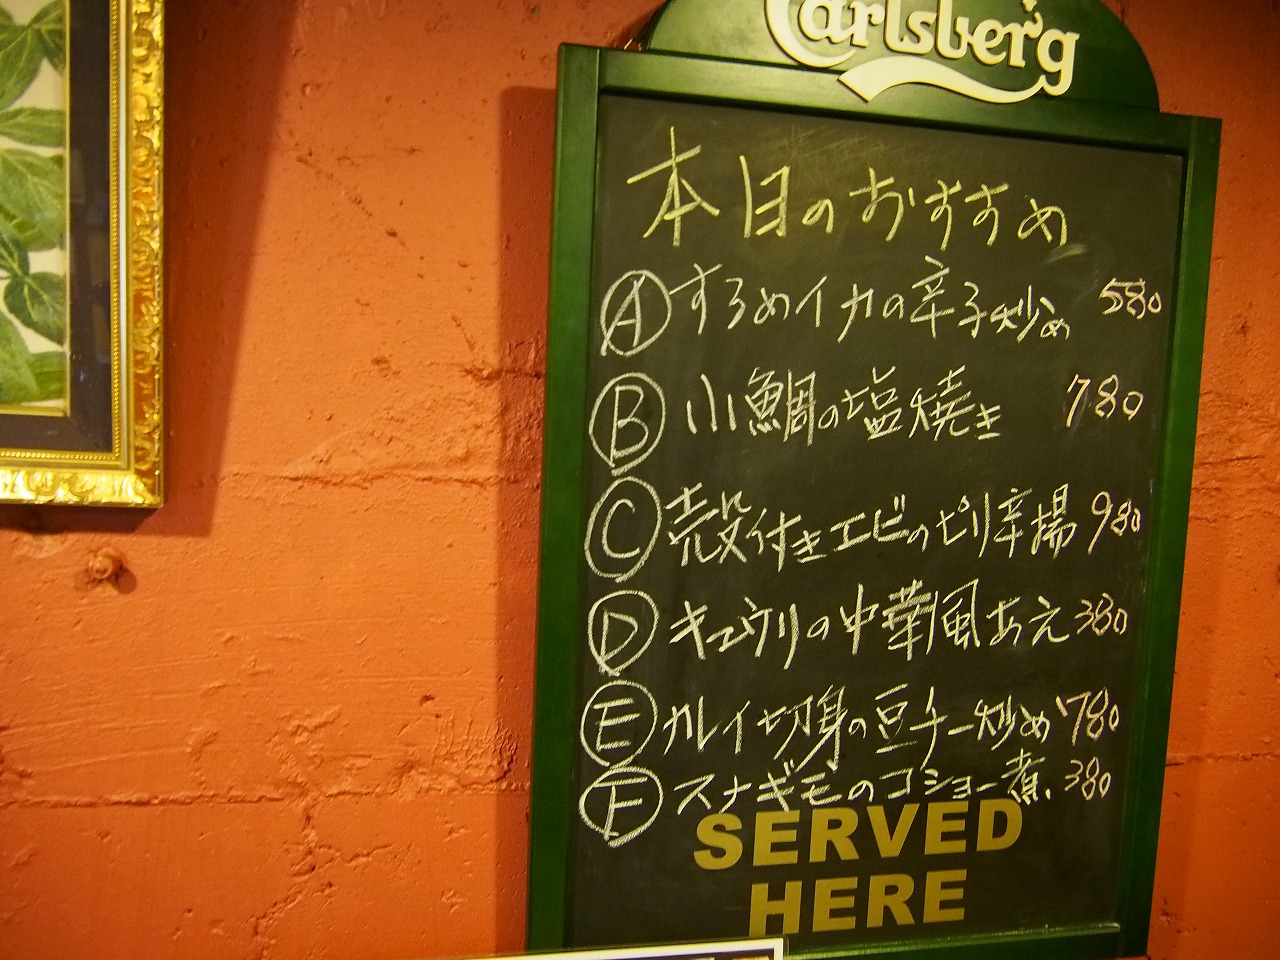 Carlsberg
本日のおすすめ
Ⓐ するめイカの辛子炒め 580
Ⓑ 小鯛の塩焼き 780
Ⓒ 殻付きエビのピリ辛揚 980
Ⓓ キュウリの中華風あえ 380
Ⓔ カレイ切身の豆チー炒め 780
Ⓕ スナギモのコショー煮 380
SERVED
HERE